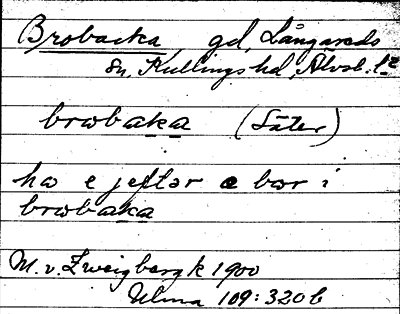 Brobacka, gd, Långareds
sn, Kullings hd, Älvsb. l.
brωbaka (Säter)
hω e jeftər ɷ bωr i
brωbaka
M. v. Zweigbergk 1900
Ulma 109:320 b